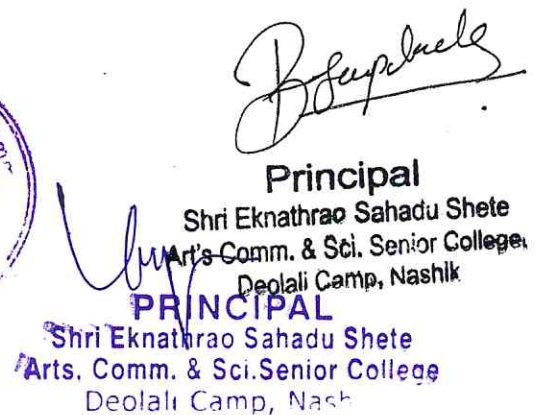 Principal
Shri Eknathrao Sahadu Shete
Art's Comm. & Sci. Senior College,
Deolali Camp, Nashik
PRINCIPAL
Shri Eknathrao Sahadu Shete
Arts, Comm. & Sci.Senior College
Deolali Camp, Nash